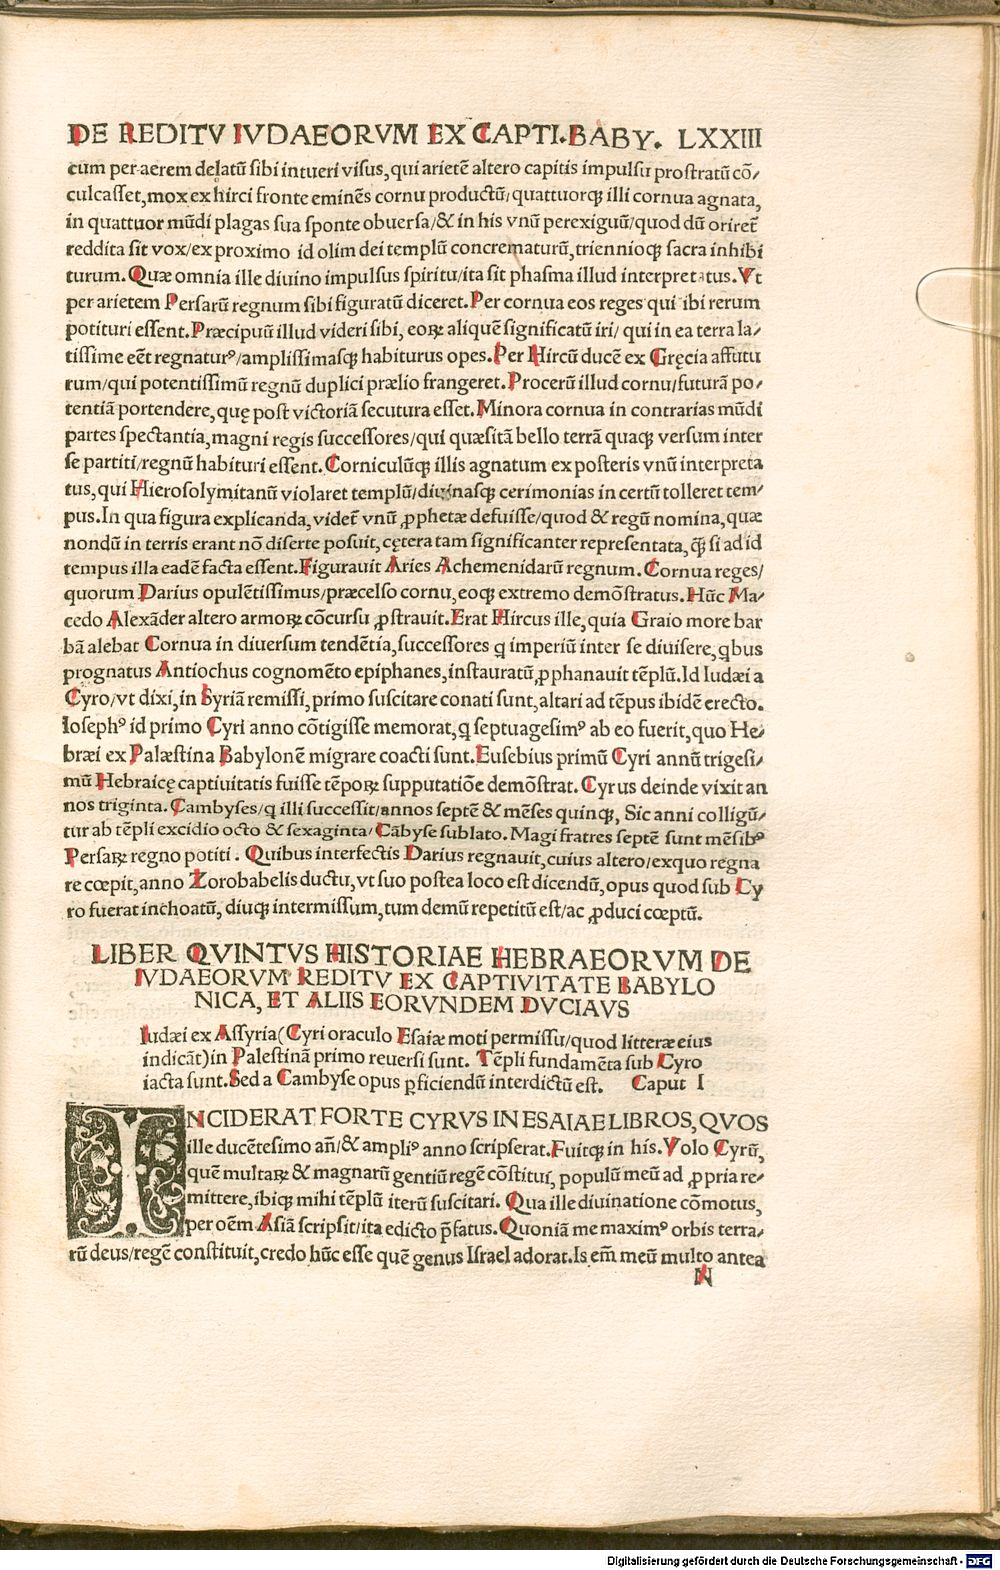 DE REDITV IVDAEORVM EX CAPTI.BABY. LXXIII
cum per aerem delatū sibi intueri visus,qui arietē altero capitis impulsu prostratū cō/
culcasset,mox ex hirci fronte eminēs cornu productū/quattuorqꝫ illi cornua agnata,
in quattuor mūdi plagas sua sponte obuersa/& in his vnū perexiguū/quod dū orireť
reddita sit vox/ex proximo id olim dei templū concrematurū,triennioqꝫ sacra inhibi
turum.Quæ omnia ille diuino impulsus spiritu/ita sit phasma illud interpretatus.Vt
per arietem Persarū regnum sibi figuratū diceret.Per cornua eos reges qui ibi rerum
potituri essent.Præcipuū illud videri sibi, eoꝝ aliquē significatū iri/ qui in ea terra la/
tissime eēt regnaturꝰ/amplissimasqꝫ habiturus opes.Per Hircū ducē ex Gręcia affutu
rum/qui potentissimū regnū duplici prælio frangeret.Procerū illud cornu/futurā po/
tentiā portendere,quę post victoriā secutura esset.Minora cornua in contrarias mūdi
partes spectantia,magni regis successores/qui quæsitā bello terrā quaqꝫ versum inter
se partiti/regnū habituri essent.Corniculūqꝫ illis agnatum ex posteris vnū interpreta
tus,qui Hierosolymitanū violaret templū/diuinasqꝫ cerimonias in certū tolleret tem/
pus.In qua figura explicanda,videť vnū ꝓphetæ defuisse/quod & regū nomina,quæ
nondū in terris erant nō diserte posuit,cętera tam significanter representata,ꝙ̃ si ad id
tempus illa eadē facta essent.Figurauit Aries Achemenidarū regnum.Cornua reges/
quorum Darius opulētissimus/præcelso cornu,eoqꝫ extremo demōstratus.Hūc Ma/
cedo Alexāder altero armoꝝ cōcursu ꝓstrauit.Erat Hircus ille,quia Graio more bar
bā alebat Cornua in diuersum tendētia,successores q imperiū inter se diuisere,qbus
prognatus Antiochus cognomēto epiphanes,instauratū,ꝓphanauit tēplū.Id Iudæi a
Cyro/vt dixi,in Syriā remissi,primo suscitare conati sunt,altari ad tēpus ibidē erecto.
Iosephꝰ id primo Cyri anno cōtigisse memorat,q septuagesimꝰ ab eo fuerit,quo He/
bræi ex Palæstina Babylonē migrare coacti sunt.Eusebius primū Cyri annū trigesi/
mū Hebraicę captiuitatis fuisse tēpoꝝ supputatiōe demōstrat.Cyrus deinde vixit an
nos triginta.Cambyses/q illi successit/annos septē & mēses quinqꝫ, Sic anni colligū/
tur ab tēpli excidio octo & sexaginta/Cābyse sublato.Magi fratres septē sunt mēsibꝰ
Persaꝝ regno potiti . Quibus interfectis Darius regnauit,cuius altero/exquo regna
re cœpit,anno Zorobabelis ductu,vt suo postea loco est dicendū,opus quod sub Cy
ro fuerat inchoatū, diuqꝫ intermissum,tum demū repetitū est/ac ꝓduci cœptū.
LIBER QVINTVS HISTORIAE HEBRAEORVM DE
IVDAEORVM REDITV EX CAPTIVITATE BABYLO
NICA, ET ALIIS EORVNDEM DVCIAVS
Iudæi ex Assyria(Cyri oraculo Esaiæ moti permissu/quod litteræ eius
indicāt)in Palestinā primo reuersi sunt. Tēpli fundamēta sub Cyro
iacta sunt.Sed a Cambyse opus ꝑficiendū interdictū est. Caput I
INCIDERAT FORTE CYRVS IN ESAIAE LIBROS,QVOS
ille ducētesimo añ/& ampliꝰ anno scripserat.Fuitqꝫ in his.Volo Cyrū,
quē multaꝝ & magnarū gentiū regē cōstitui, populū meū ad ꝓpria re/
mittere,ibiqꝫ mihi tēplū iterū suscitari. Qua ille diuinatione cōmotus,
per oēm Asiā scripsit/ita edicto p̄fatus.Quoniā me maximꝰ orbis terra/
rū deus/regē constituit,credo hūc esse quē genus Israel adorat.Is em̄ meū multo antea
N
Digitalisierung gefördert durch die Deutsche Forschungsgemeinschaft - DFG